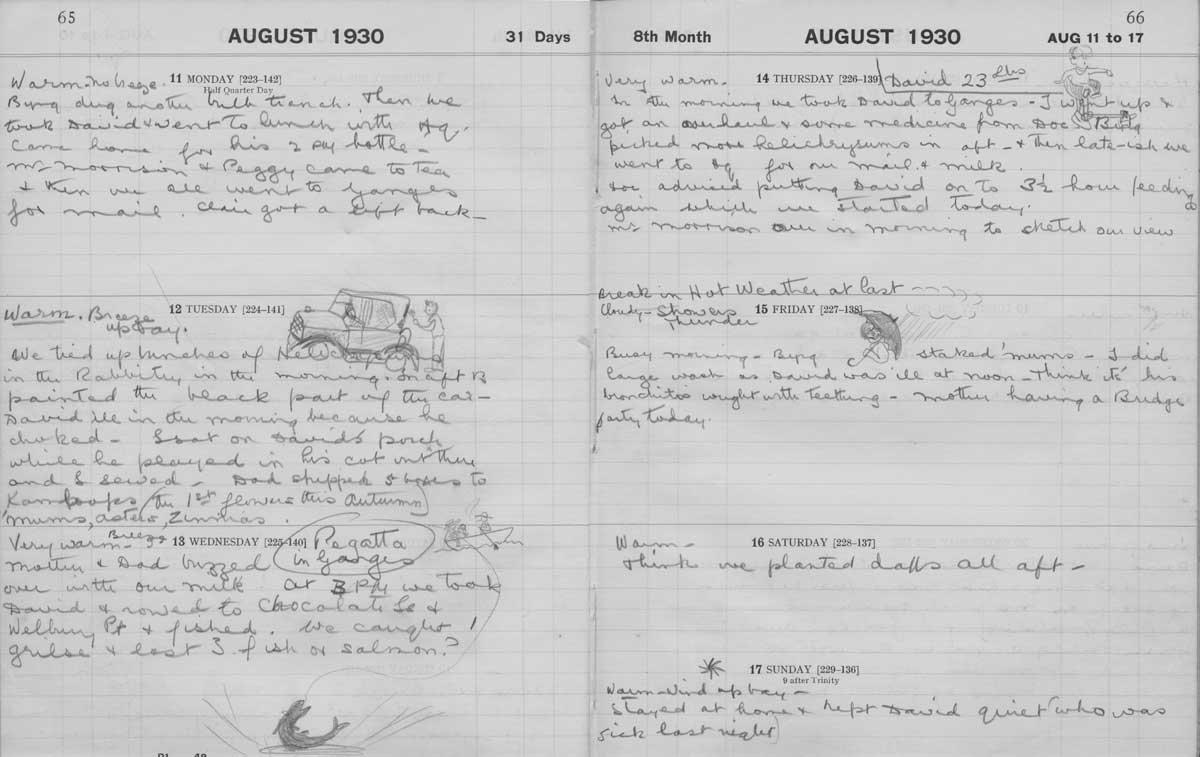 65
AUGUST 1930
31 Days
Warm. No breeze.
11 MONDAY [223–142]
Half Quarter Day
Byng dug another bulb trench. Then we
took David & went to lunch with Hq.
Came home for his 2 PM bottle –
Mr Morrison & Peggy came to Tea
& then we all went to Ganges
for mail. Clair got a lift back –
12 TUESDAY [224–141]
Warm. Breeze
up bay.
We tied up bunches of
in the Rabbitry in the morning. In aft B
painted the black part of the car –
David ill in the morning because he
choked – I sat on David's porch
while he played in his cot out there
and I sewed – Dad shipped 5 boxes to
Kamloops (the 1st flowers this Autumn)
'mums, asters, Zinnias.
13 WEDNESDAY [225–140]
Very warm – Breeze
Regatta
in Ganges
Mother & Dad buzzed
over with our milk. At 3 PM we took
David & rowed to Chocolate Is &
Welbury Pt & fished. We caught 1
grilse & lost 3 fish or salmon?
66
8th Month
AUGUST 1930
AUG 11 to 17
Very warm –
14 THURSDAY [226–139]
David 23 lbs
In the morning we took David to Ganges – I went up &
got an overhaul & some medicine from Doc. Byng
picked more helichrysums in aft – & then late-ish we
went to Hq for our mail & milk.
Doc advised putting David on to 3½ hour feeding
again which we started today.
Mr Morrison over in morning to sketch our view
Break in Hot Weather at last
Cloudy – Showers
Thunder
15 FRIDAY [227–138]
Busy morning – Byng staked 'mums – I did
large wash as David was ill at noon – Think it's his
bronchitis wright with Teething – Mother having a Bridge
party today.
16 SATURDAY [228–137]
Warm –
Think we planted daffs all aft –
17 SUNDAY [229–136]
9 after Trinity
Warm – Wind up bay –
Stayed at home & kept David quiet (who was
sick last night)